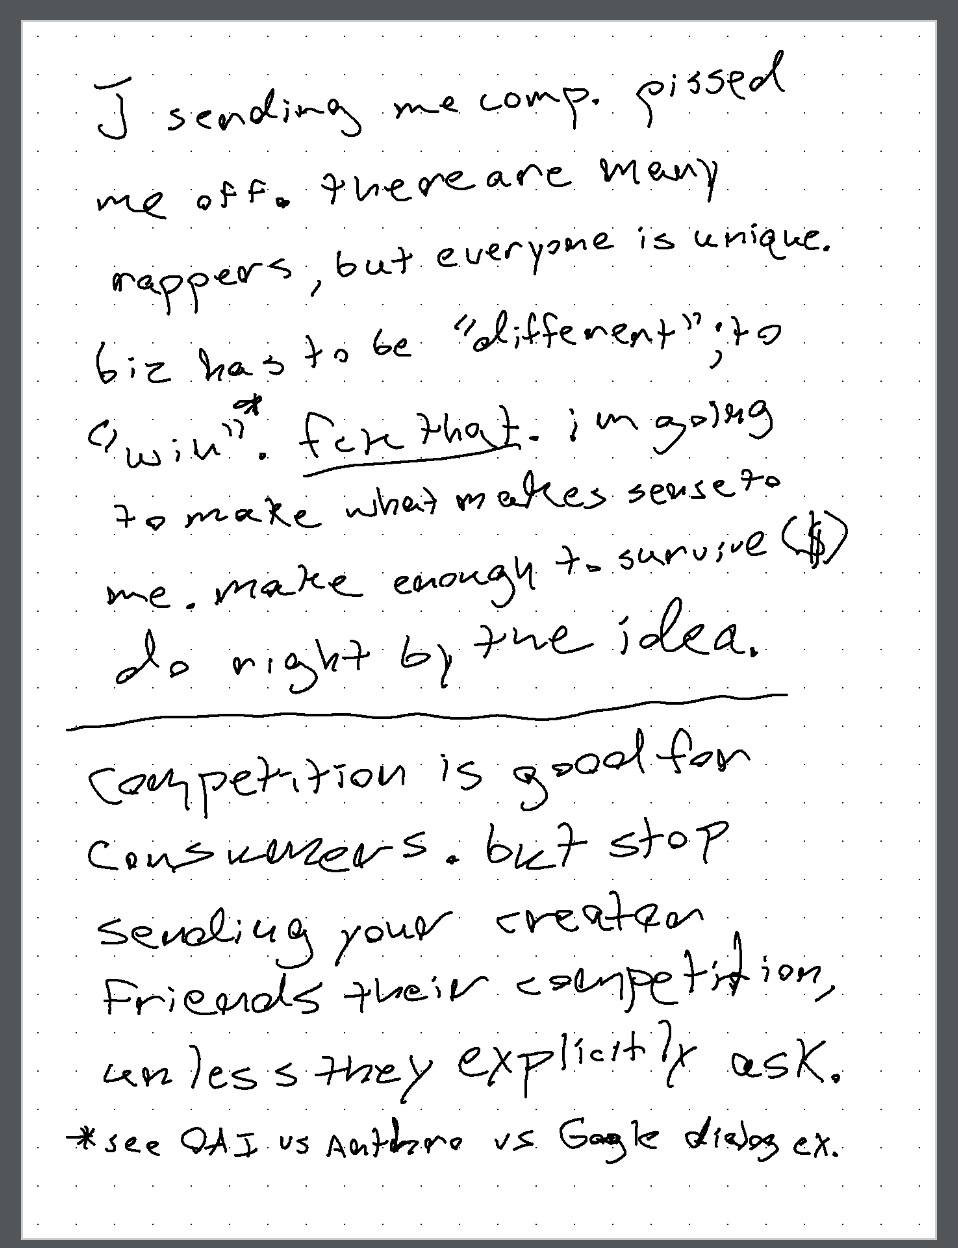 J sending me comp. pissed
me off. there are many
rappers, but everyone is unique.
biz has to be "different"; to
"win"*. fck that. im going
to make what makes sense to
me. make enough to survive ($)
do right by the idea.
Competition is good for
consumers. but stop
sending your creator
friends their competition,
unless they explicitly ask.
*see OAI vs Anthro vs Google dialog ex.